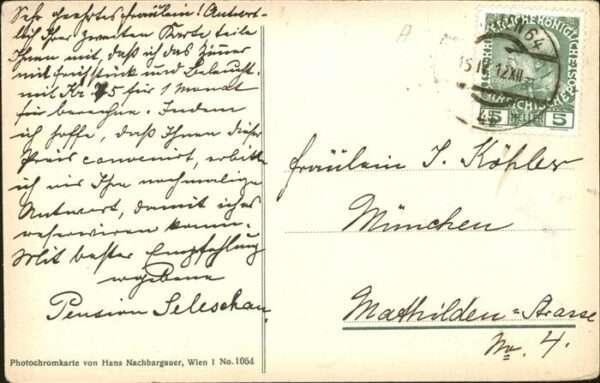 Sehr geehrtes Fräulein! Antwort-
lich Ihrer zweiten Karte teile
Ihnen mit, daß ich das Zimmer
mit Frühstück und Beleucht.
mit Kr 75 für 1 Monat
für berechne. Indem
ich hoffe, daß Ihnen dieser
Preis convenirt, erbitte
ich mir Ihre nochmalige
Antwort, damit ich es
reservieren kann.
Mit bester Empfehlung
ergebene
Pension Seleschan.
Photochromkarte von Hans Nachbargauer, Wien I No. 1064
64
15 IV 12 XII
5 5
Fräulein I. Köhler
München
Mathilden-Strasse
No. 4.